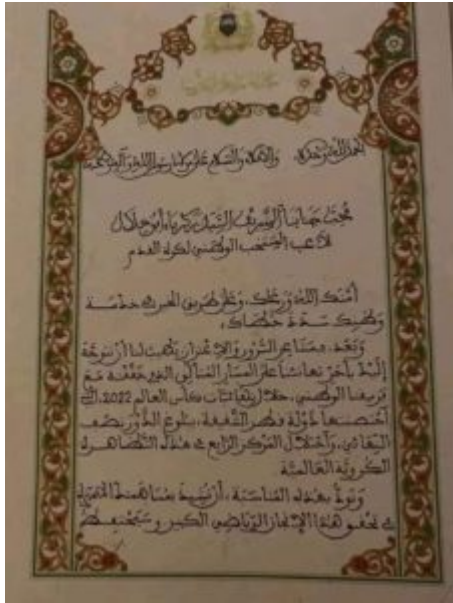 الحمد لله وحده، والصلاة والسلام على مولانا رسول الله وآله وصحبه
الشريف السيد زكرياء أبو خلال
لاعب المنتخب الوطني لكرة القدم
أمنك الله ورعاك، وعلى طريق الخير في خدمة
وطنك سدد خطاك،
وبعد، فمن السرور والاعتزاز أن نتوجه
إليك بأحر تهانئنا على المسار المثالي الذي حققته مع
فريقنا الوطني، خلال نهائيات كأس العالم 2022، التي
احتضنتها دولة قطر الشقيقة، ببلوغ الدور نصف
النهائي، واحتلال المركز الرابع في هذه التظاهرة
الكروية العالمية.
ونود بهذه المناسبة، أن نشيد بمساهمتك
في تحقيق هذا الإنجاز الرياضي الكبير